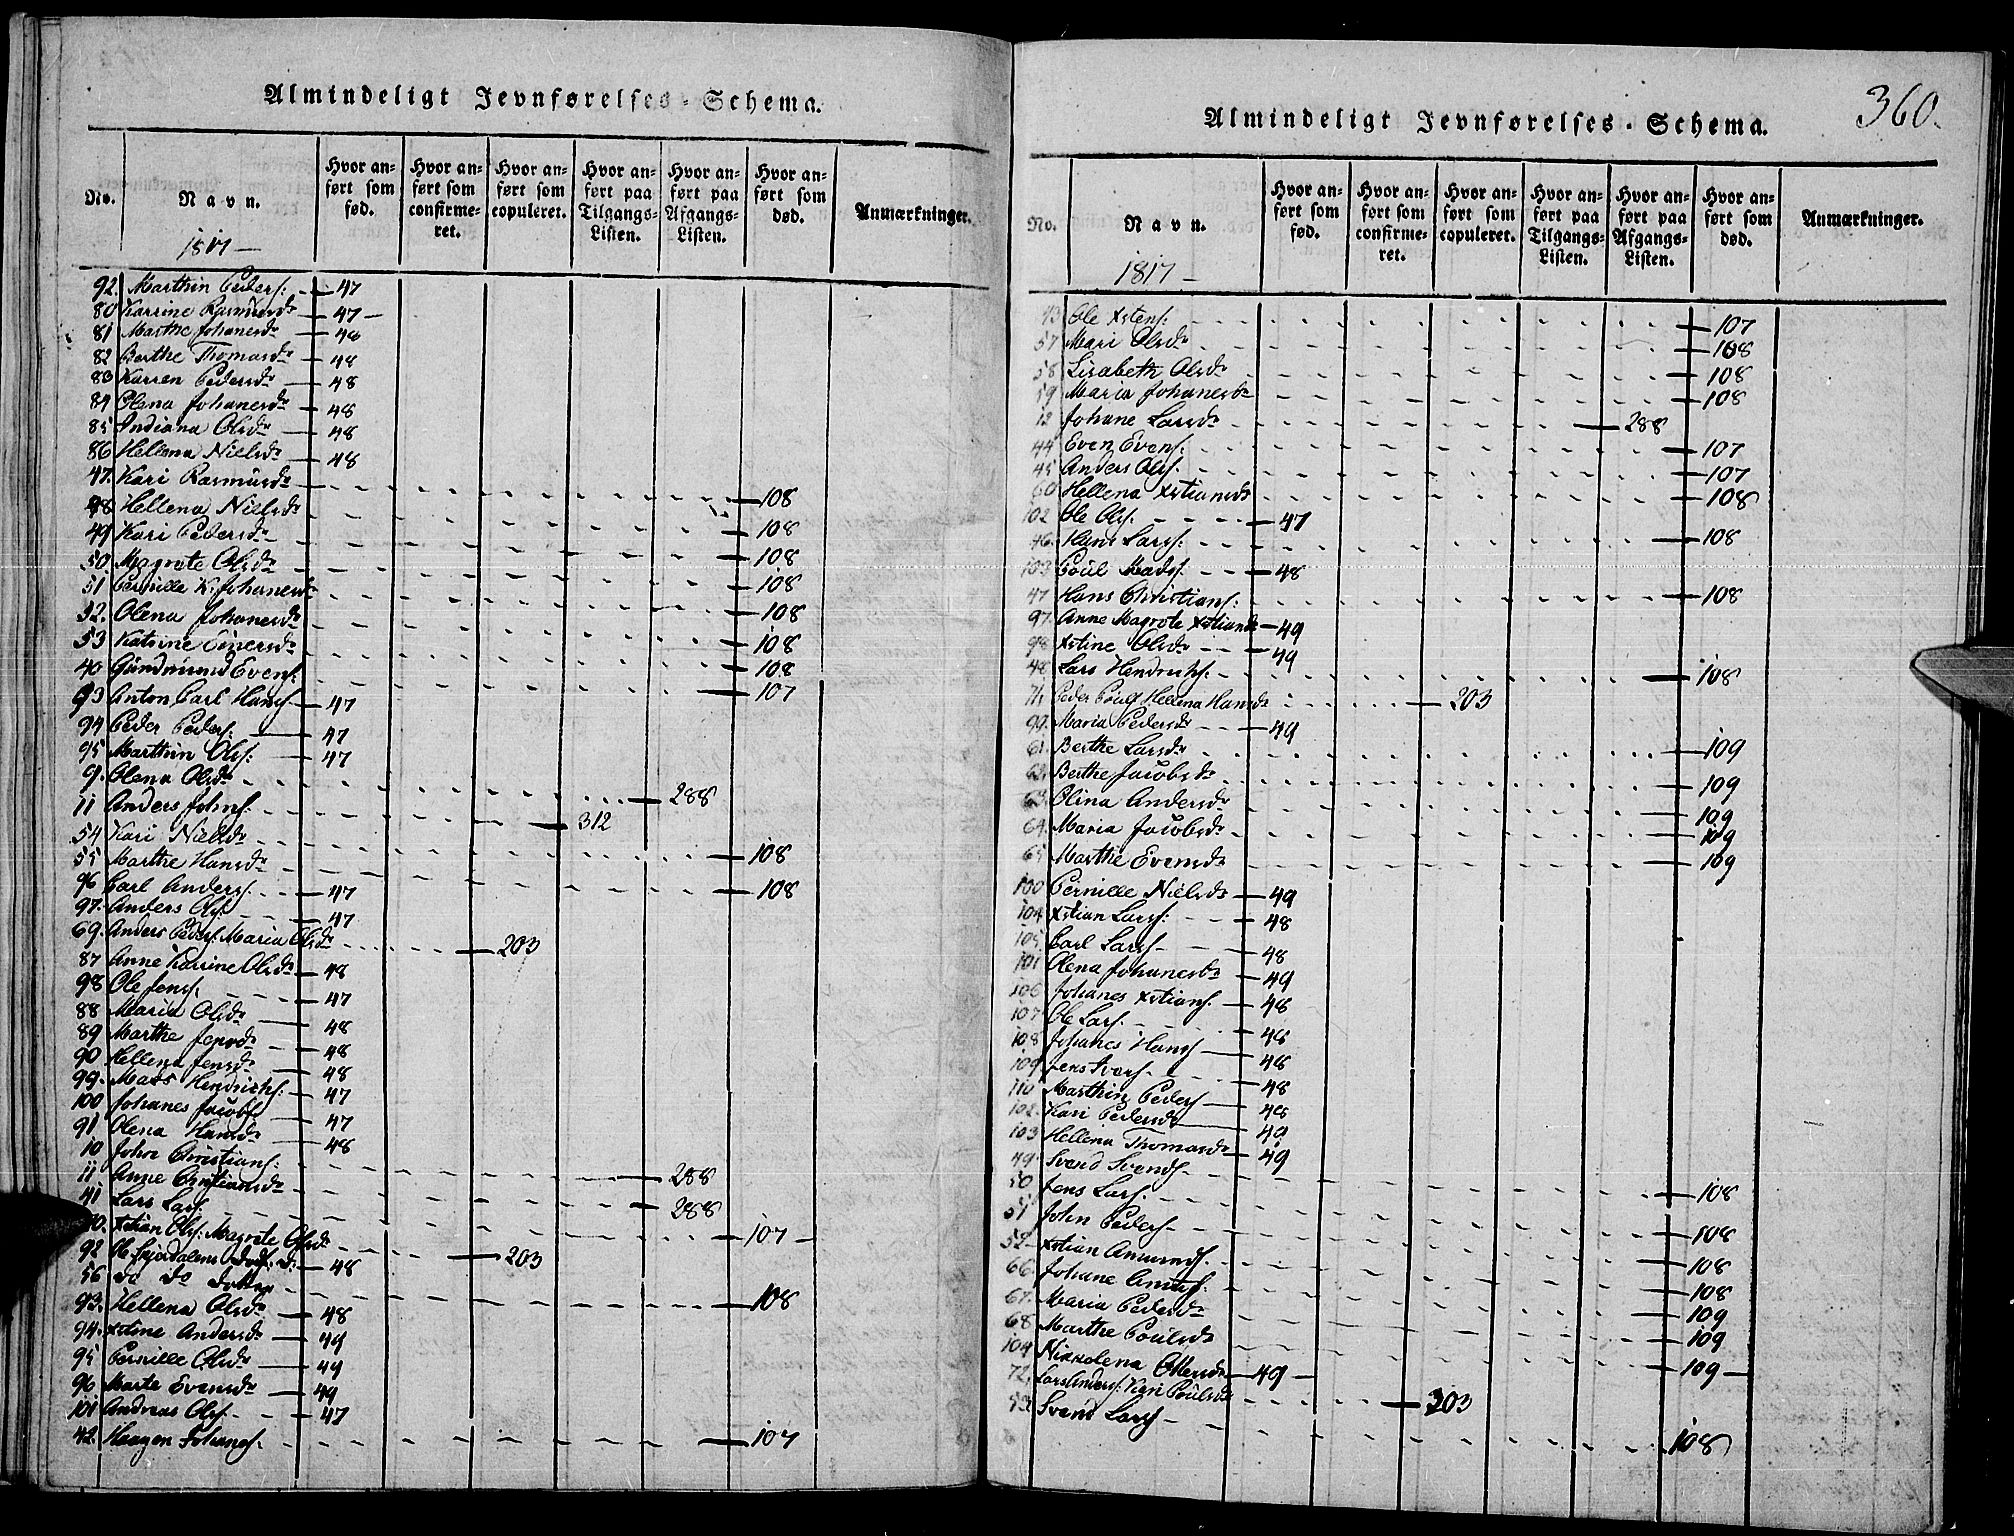 Almindeligt Jevnførelses-Schema.
No. Navn. Hvor anført som fød. Hvor anført som confirmeret. Hvor anført som copuleret. Hvor anført paa Tilgangs-Listen. Hvor anført paa Afgangs-Listen. Hvor anført som død. Anmærkninger.
1817 —
92. Marthin Peders: 47
80 Karrine Rasmusdr 47 —
81 Marthe Johanesdr 48
82 Berthe Thomasdr 48
83 Karren Pedersdr 48
84 Olena Johanesdr 48
85 Indiana Olsdr 48
86 Hellena Nielsdr 48
47. Kari Rasmusdr 108
48 Hellena Nielsdr 108
49 Kari Pedersdr 108
50. Magrete Olsdr 108
51 Pernille K. Johanesdr 108
52. Olena Johanesdr 108
53 Katrine Einersdr 108
40 Gundmund Evens: 107
93 Anton Carl Hans 47
94 Peder Peders: 47
95 Marthin Ols: 47
9. Olena Olsdr 288
11 Anders Johns. 312
54 Kari Nielsdr 108
55 Marthe Hansdr 108
96 Carl Anders: 47
97. Anders Ols: 47
69. Anders Peders: Maria Olsdr 203
87 Anne Karrine Olsdr 48
98 Ole Jens. 47
88 Maria Olsdr 48
89 Marthe Jensdr 48
90 Hellena Jensdr 48
99. Mass Hendrichs: 47
100 Johanes Jacobs 47
91 Olena Hansdr 48
10 John Christians: 288
11 Anne Christiansdr 288
41 Lars Lars. 107 —
70. Xstian Ols: Magrete Olsdr 203
92 48
56 do do 108
93. Hellena Olsdr 48
94. Xstine Andersdr 49
95 Pernille Olsdr 49
96 Marte Evensdr 49
101 Andreas Ols. 47
42. Haagen Johans. 107
360.
Almindeligt Jevnførelses-Schema.
No. Navn. Hvor anført som fød. Hvor anført som confirmeret. Hvor anført som copuleret. Hvor anført paa Tilgangs-Listen. Hvor anført paa Afgangs-Listen. Hvor anført som død. Anmærkninger.
1817 —
43 Ole Xstens: 107
57 Mari Olsdr 108
58 Lisabeth Olsdr 108
59 Maria Johanesdr 108
12 Johane Larsdr 288
44 Even Evens: 107
45 Anders Ols. 107
60 Hellena Xstiansdr 108
102 Ole Ols. 47
46. Hans Lars: 108
103 Poul Mads. 48
47 Hans Christians: 108
97. Anne Magrete Xstiansdr 49
98 Xstine Olsdr 49
48 Lars Hendrichs. 108
71. Peder Pouls Hellena Hansdr 203
99. Maria Pedersdr 49
61. Berthe Larsdr 109
62. Berthe Jacobsdr 109
63. Olina Andersdr 109
64. Maria Jacobsdr 109
65 Marthe Evensdr 109
100 Pernille Nielsdr 49
104 Xstian Lars: 48
105. Carl Lars 48
101 Olena Johanesdr 49
106 Johanes Xstians. 48
107 Ole Lars. 48
108 Johanes Hans 48
109 Jens Ivers 48
110 Marthin Peders 48
102. Kari Pedersdr 49
103 Hellena Thomasdr 49
49. Svend Svends 108
50 Jens Lars. 108
51 John Peders 108
52 Xstian Amunds. 108
66 Johane 109
67. Maria Pedersdr 109
68 Marthe Poulsdr 109 —
104 Nikkolena Ottersdr 49 —
72. Lars Anders: Kari Poulsdr 203
53. Svend Lars 108